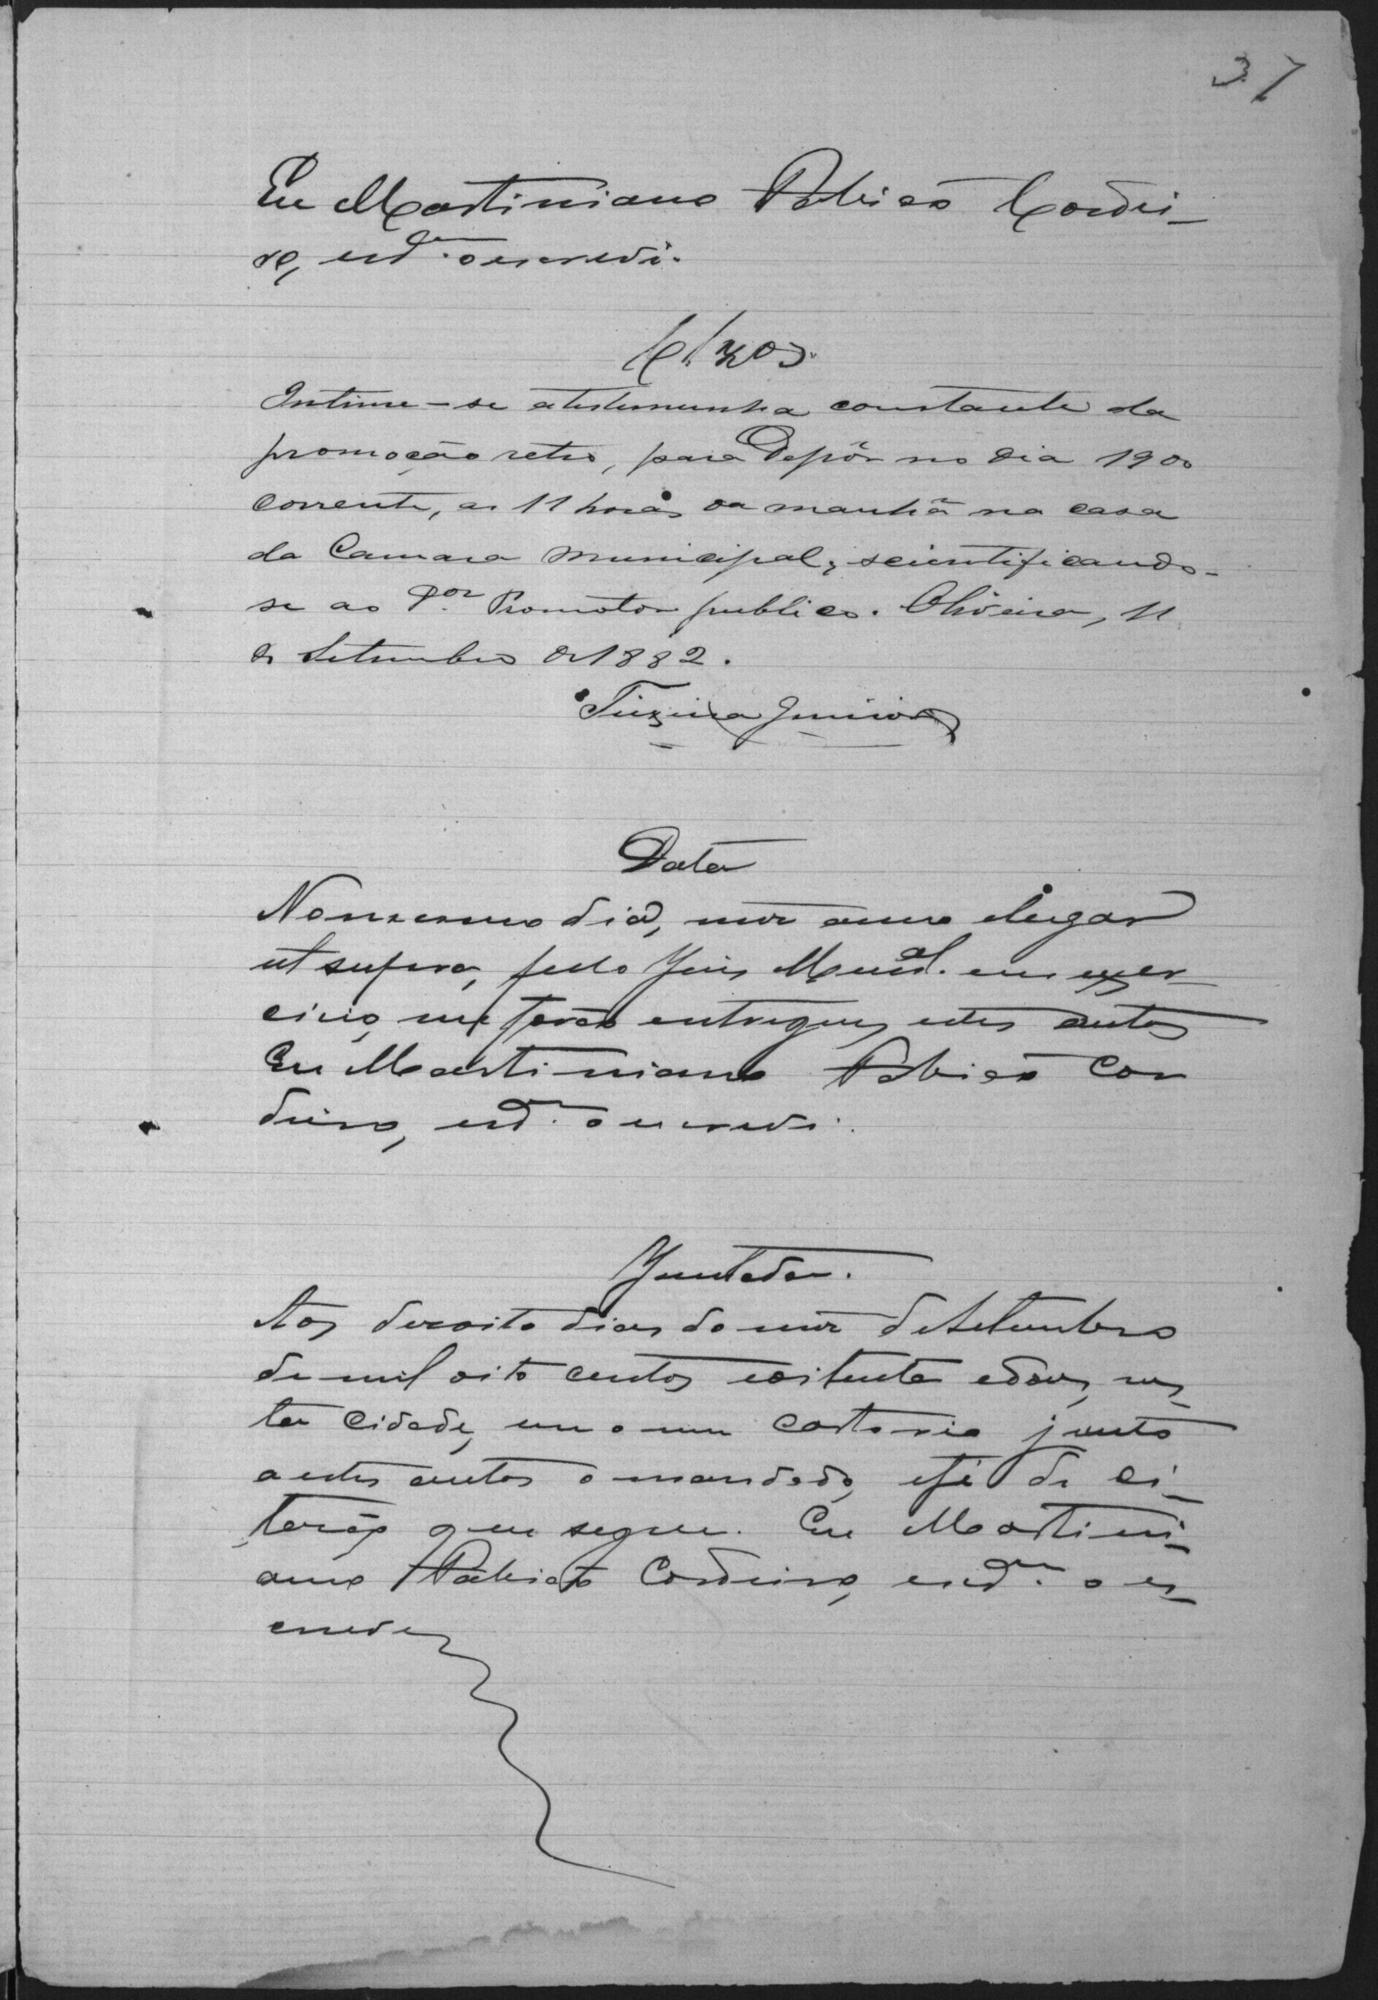 37
Eu Martiniano Patricio Cordei-
ro, escr.m o escrevi.
Cl.zos
Intime-se a testemunha constante da
promoção retro, para Depôr no dia 19 do
corrente, as 11 horas da manhã na casa
da Camara Municipal, scientificando-
se ao Dor Promotor publico. Oliveira, 11
de Setembro de 1882.
Teixeira Junior
Data
No mesmo dia, mez anno e lugar
ut supra, pelo Juiz Munal. em exer-
cicio, me forão entregues estes autos
Eu Martiniano Patricio Cor
deiro, escr.m o escrevi.
Juntada.
Aos dezoito dias do mez de Setembro
de mil oito centos e oitenta e dous, nes-
ta cidade, em o meu cartorio junto
a estes autos o mandado, e fé de ci-
tação que segue. Eu Martini-
ano Patricio Cordeiro, escr.m o es-
crevi